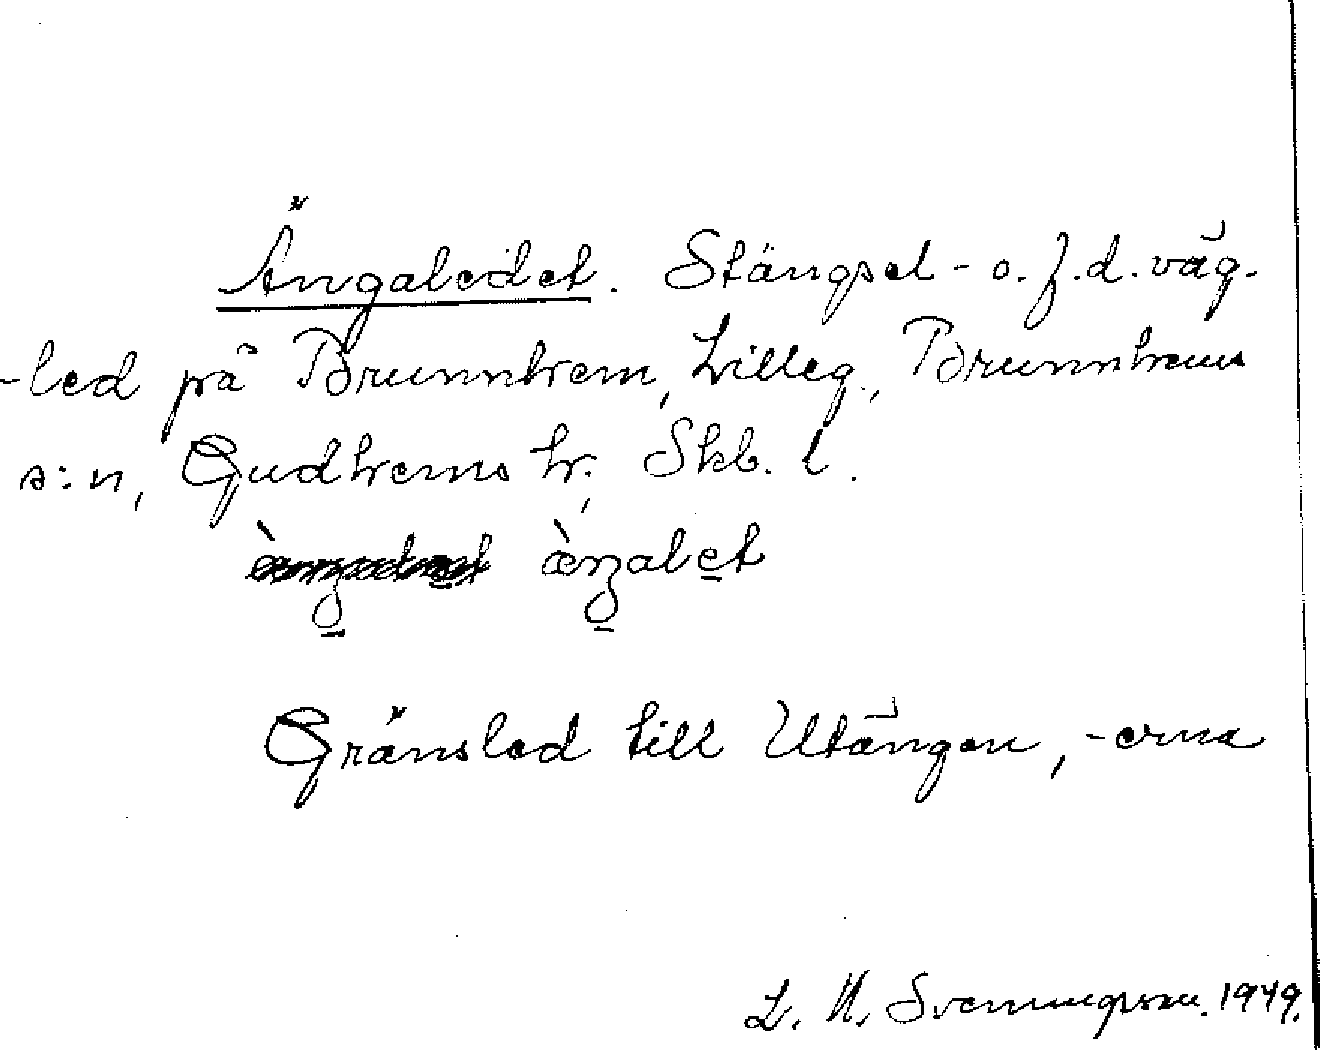 Ängaledet. Stängsel- o. f.d. väg-
-led på Brunnhem, Lilleg., Brunnhems
s:n, Gudhems hr., Skb. l.
Gränsled till Utängen, -erna
L. N. Svenungsson. 1949.